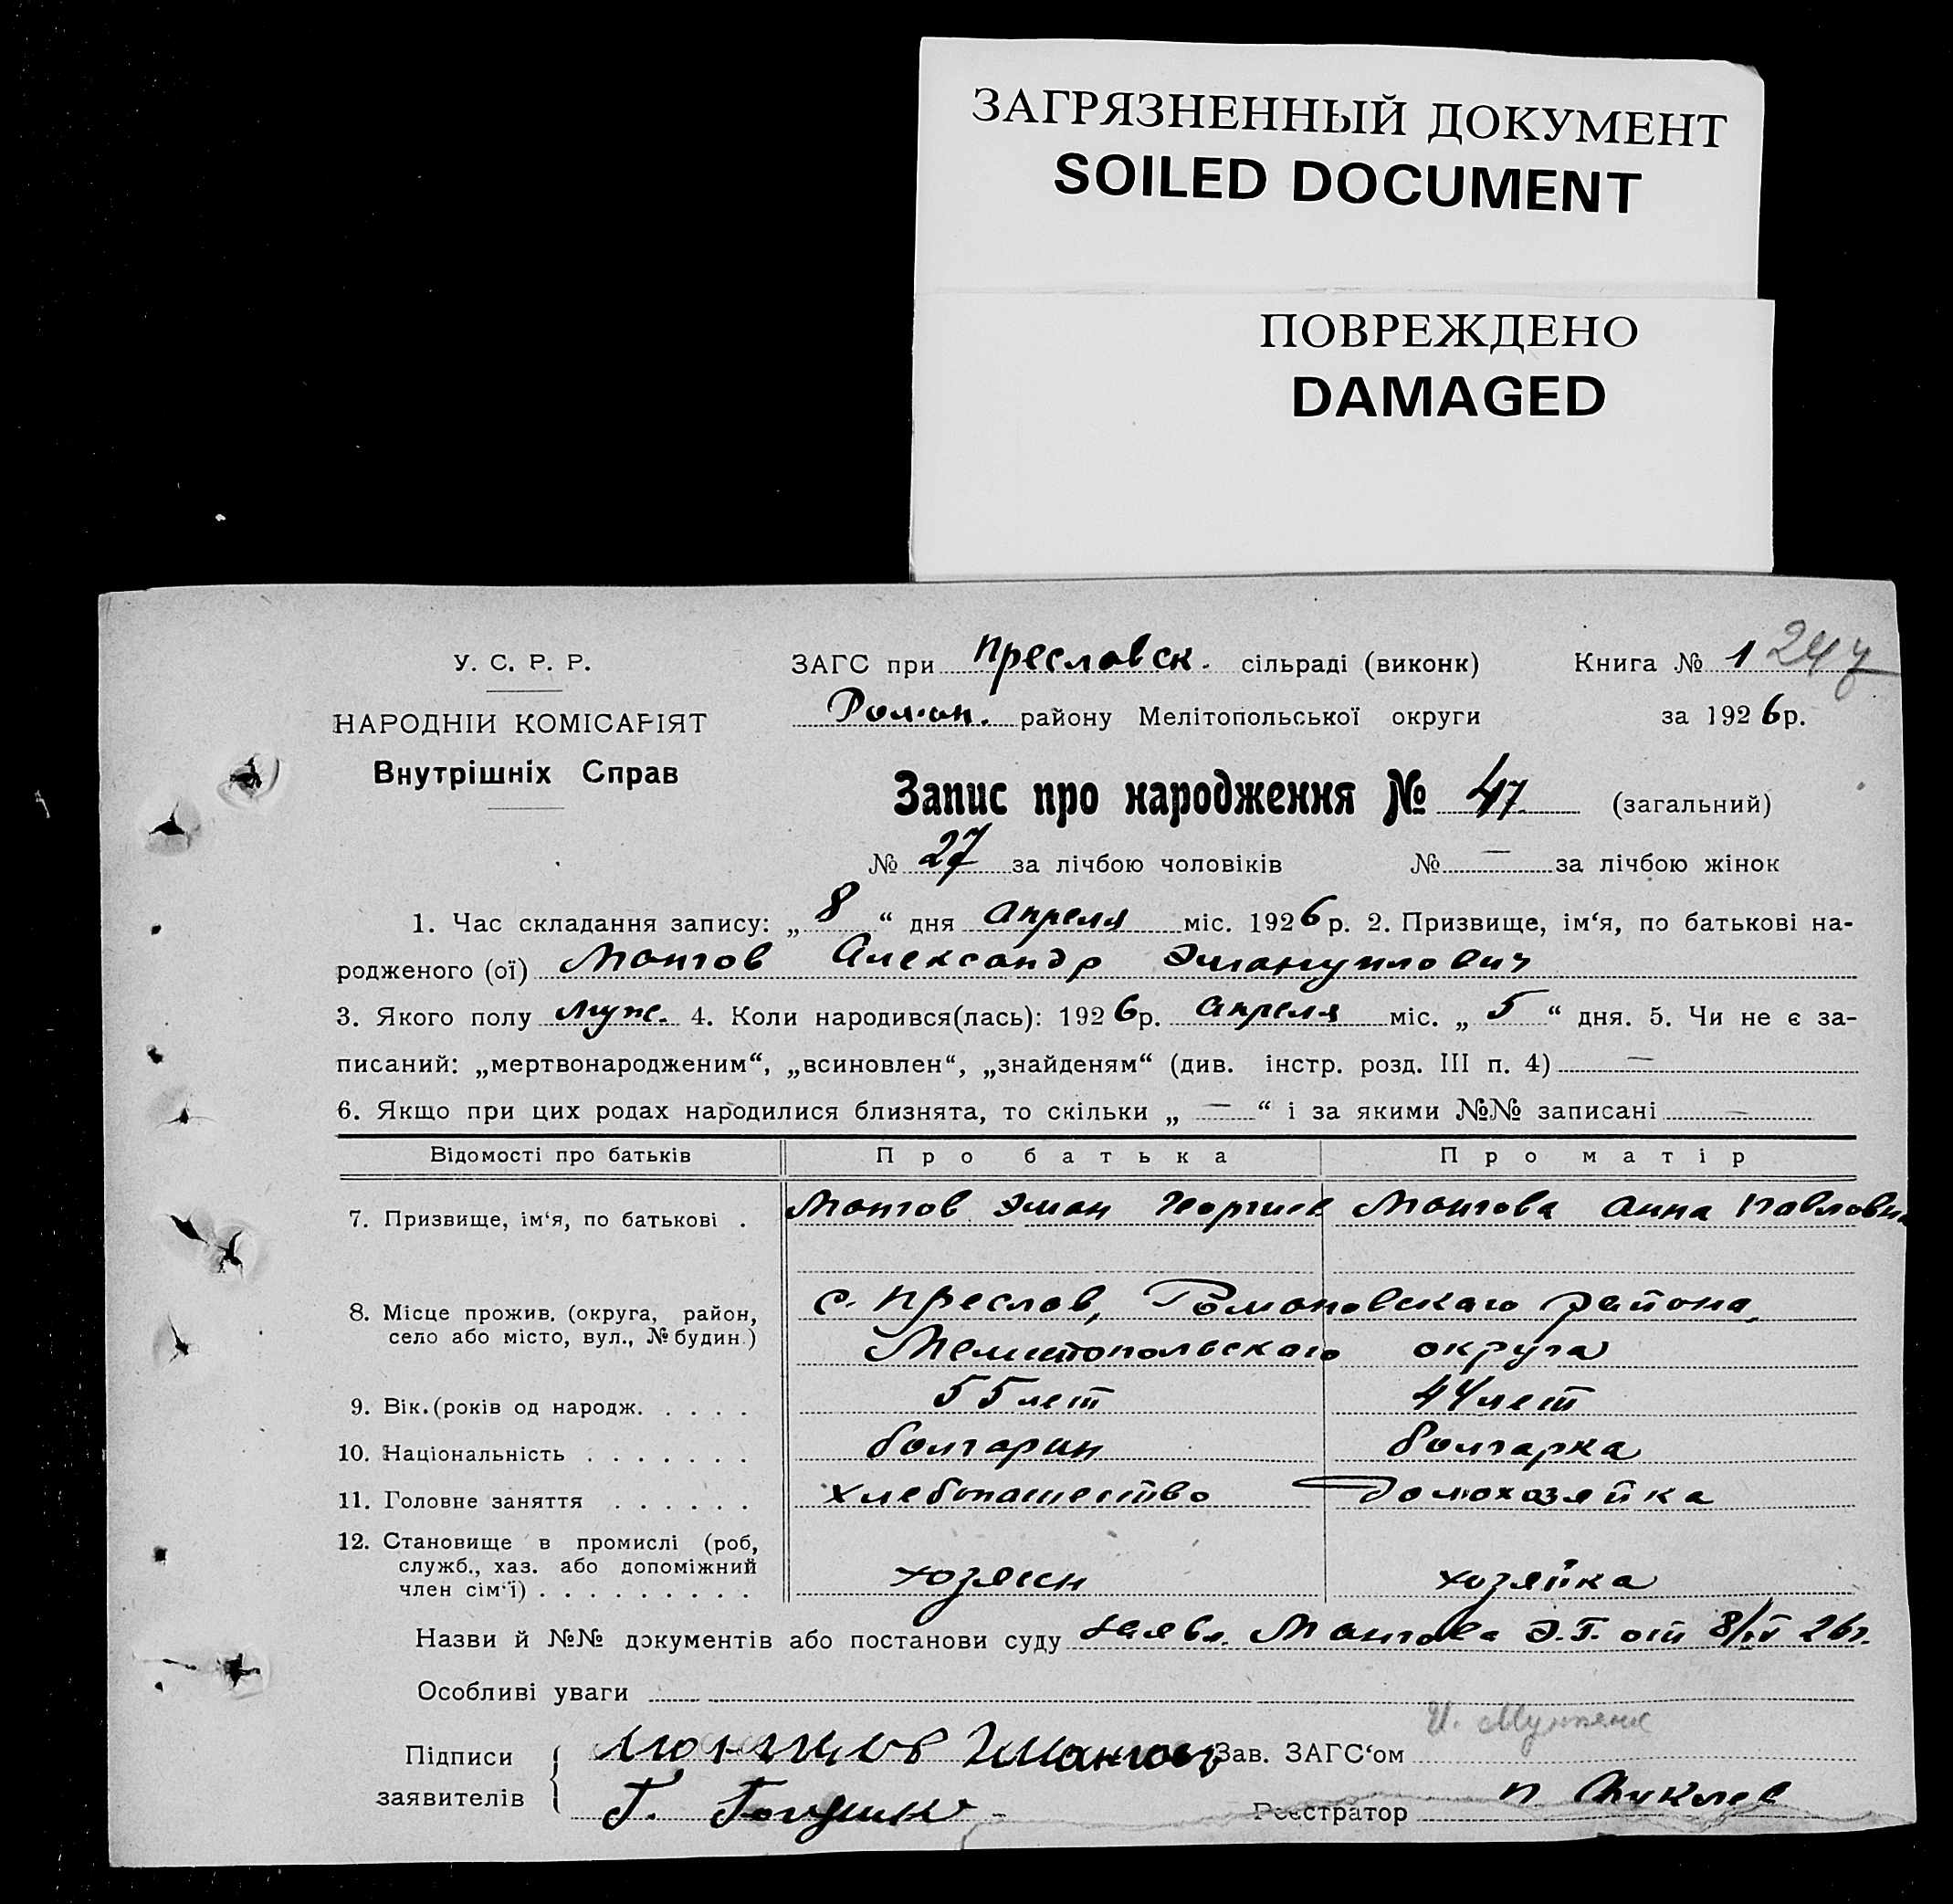 ЗАГРЯЗНЕННЫЙ ДОКУМЕНТ
SOILED DOCUMENT
ПОВРЕЖДЕНО
DAMAGED
У. С. Р. Р.
НАРОДНІЙ КОМІСАРІЯТ
Внутрішніх Справ
ЗАГС при Пресловск. сільраді (виконк) Книга № 1 247
Роман. району Мелітопольської округи за 1926р.
Запис про народження № 47 (загальний)
№ 27 за лічбою чоловіків № — за лічбою жінок
1. Час складання запису: „ 8 “ дня апреля міс. 1926р. 2. Призвище, ім‘я, по батькові на-
родженого (ої) Монгов Александр Эмануилович
3. Якого полу муж. 4. Коли народився(лась): 1926р. апреля міс. „ 5 “ дня. 5. Чи не є за-
писаний: „мертвонародженим“, „всиновлен“, „знайденям“ (див. інстр. розд. III п. 4) —
6. Якщо при цих родах народилися близнята, то скільки „ — “ і за якими №№ записані —
Відомості про батьків Про батька Про матір
7. Призвище, ім‘я, по батькові . Монгов Эман Георгиев Монгова Анна Павловн
8. Місце прожив. (округа, район,
село або місто, вул., № будин.)
с. Преслав, Романовскаго района,
Мелитопольскаго округа
9. Вік.(років од народж. . . . . 55 лет 44 лет
10. Національність . . . . . . . болгарин болгарка
11. Головне заняття . . . . . . хлебопашество домохозяйка
12. Становище в промислі (роб,
служб., хаз. або допоміжний
член сім‘ї) . . . . . . . . . хозяин хозяйка
Назви й №№ документів або постанови суду заявл. Монгова Э.Г. от 8/IV 26г.
Особливі уваги
Підписи
заявителів
Зав. ЗАГС‘ом
Г.
Реєстратор П